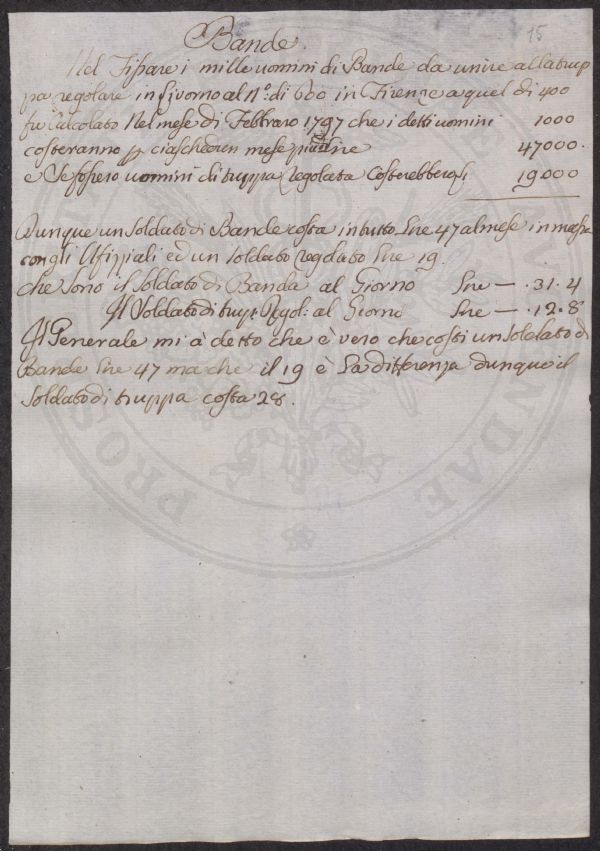 15
Bande.
Nel Fissare i mille uomini di Bande da unire alla trup
pa regolare in Livorno al N.º di 600 in Firenze a quel di 400
fu Calcolato Nel mese di Febbraro 1797 che i detti uomini 1000
costeranno p ciascheun mese 47000.
e Se fossero uomini di truppa Regolata Costerebbero 19000
Dunque un Soldato di Bande costa in tutto Lire 47 al mese in massa
con gli Ufizziali ed un Soldato Regolato Lire 19.
che Sono il Soldato di Banda al Giorno Lire — . 31. 4
Il Soldato di trup. Regol: al Giorno Lire — . 12. 8
Il Generale mi à detto che è vero che costi un Soldato di
Bande Lire 47 ma che il 19 è La differenza dunque il
Soldato di truppa costa 28.
PROS
UNDAE